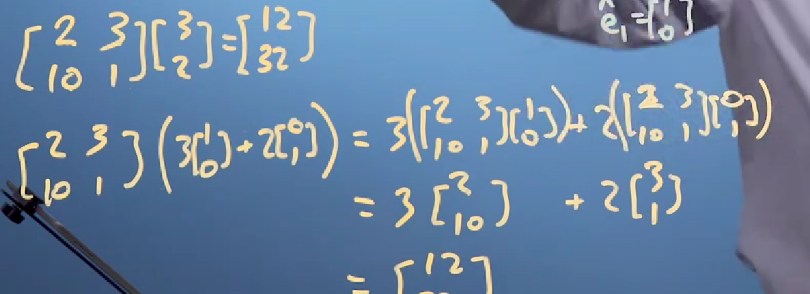 ê₁ = [1; 0]
[2 3; 10 1][3; 2] = [12; 32]
[2 3; 10 1](3[1; 0] + 2[0; 1]) = 3([2 3; 10 1][1; 0]) + 2([2 3; 10 1][0; 1])
= 3[2; 10] + 2[3; 1]
= [12